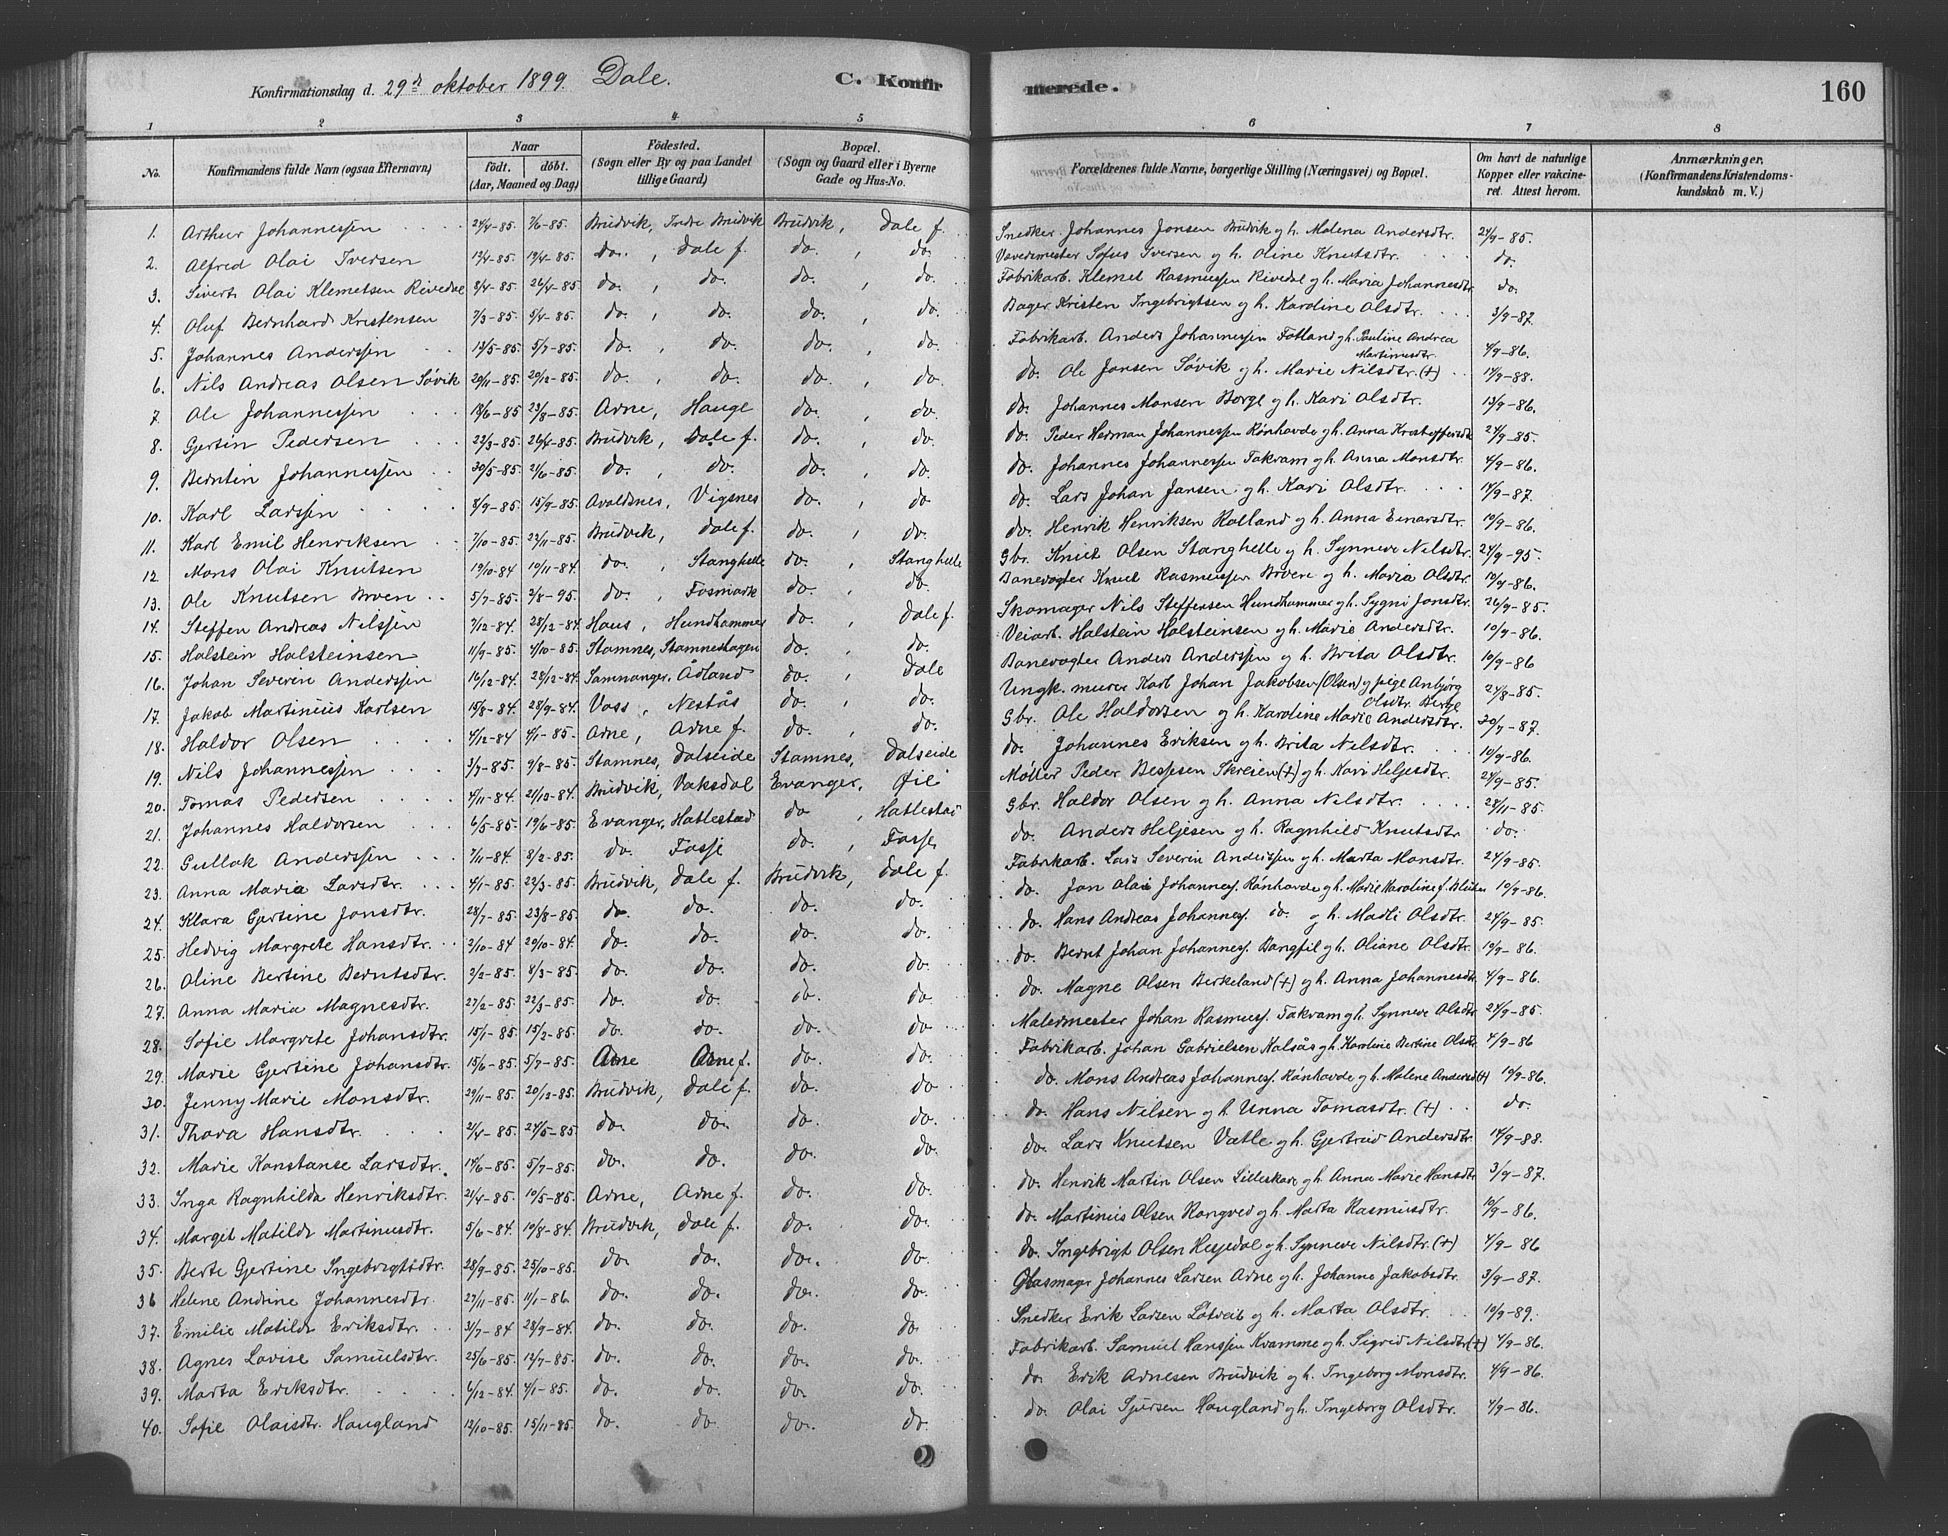 Konfirmationsdag d. 29de oktober 1899. Dale. C. Konfirmerede. 160
1 2 3 4 5 6 7 8
No. Konfirmandens fulde Navn (ogsaa Efternavn) Naar födt. döbt. (Aar, Maaned og Dag) Födested. (Sogn eller By og paa Landet tillige Gaard) Bopæl. (Sogn og Gaard eller i Byerne Gade og Hus-No. Forældrenes fulde Navne, borgerlige Stilling (Næringsvei) og Bopæl. Om havt de naturlige Kopper eller vakcineret. Attest herom. Anmærkninger. (Konfirmandens Kristendomskundskab m. V.)
1. Arthur Johannessen 24/4-85. 7/6-85. Brudvik, Indre Brudvik Brudvik, Dale f. Snedker Johannes Jonsen Brudvik og h. Malena Andersdtr. 24/9-85.
2. Alfred Olai Iversen 12/4-85. 19/4-85. do., Dale f. do., do. Vævemester Sofus Iversen og h. Oline Knutsdtr. do.
3. Sivert Olai Klemetsen Rivedal 8/4-85. 26/4-85. do., do. do., do. Fabrikarb. Klemet Rasmussen Rivedal og h. Maria Johannesdtr. do.
4. Oluf Bernhard Kristensen 7/3-85. 5/4-85. do., do. do., do. Bager Kristen Ingebrigtsen og h. Karoline Olsdtr. 3/9-87.
5. Johannes Anderssen 13/5-85. 5/7-85. do., do. do., do. Fabrikarb. Anders Johannessen Fotland og h. Pauline Andrea Martinusdtr. 4/9-86.
6. Nils Andreas Olsen Søvik 29/11-85. 20/12-85. do., do. do., do. do. Ole Jansen Søvik og h. Marie Nilsdtr. (+) 14/9-88.
7. Ole Johannessen 18/6-85 23/8-85. Arne, Hauge do., do. do. Johannes Monsen Borge og h. Kari Olsdtr. 13/9-86.
8. Gjertin Pedersen 22/3-85. 26/4-85. Brudvik, Dale f. do., do. do. Peder Herman Johannessen Rönhovde og h. Anna Kristoffersdtr. 24/9-85.
9. Berntin Johannessen 30/5-85. 21/6-85. do., do. do., do. do. Johannes Johannessen Takvam og h. Anna Monsdtr. 4/9-86.
10. Karl Larssen 8/9-85. 15/9-85. Avaldsnes, Vigsnes do., do. do. Lars Johan Jansen og h. Kari Olsdtr. 14/9-87.
11. Karl Emil Henriksen 7/10-85. 22/11-85. Brudvik, Dale f. do., do. do. Henrik Henriksen Rolland og h. Anna Einarsdtr. 10/9-86.
12. Mons Olai Knutsen 19/10-84. 19/11-84. do., Stanghelle do., Stanghelle Gbr. Knut Olsen Stanghelle og h. Synneve Nilsdtr. 24/9-95.
13. Ole Knutsen Broen 5/7-85. 2/8-95. do., Fosmark do. do. Banevogter Knut Rasmussen Broen og h. Maria Olsdtr. 10/9-86.
14. Steffen Andreas Nilssen 7/12-84. 28/12-84. Haus, Hundhammer do., Dale f. Skomager Nils Steffensen Hundhammer og h. Sygni Jonsdtr. 26/9-85.
15. Halstein Halsteinsen 11/9-85. 4/10-85. Stamnes, Stamneshagen do., do. Veiarb. Halstein Halsteinsen og h. Marie Andersdtr. 10/9-86.
16. Johan Severin Anderssen 16/12-84. 28/12-84. Samnanger, Ådland do., Dale Banevogter Anders Anderssen og h. Brita Olsdtr. 10/9-86
17. Jakob Martinius Karlsen 15/8-84. 28/9-84. Voss, Nestås do., do. Ungk. murer Karl Johan Jakobsen (Olsen) og pige Anbjörg Olsdtr. Berge 24/8-85.
18. Haldor Olsen 4/12-84 4/1-85. Arne, Arne f. do., do. Gbr. Ole Haldorsen og h. Karoline Marie Andersdtr. 20/9-87.
19. Nils Johannessen 3/7-85. 9/8-85. Stamnes, Dalseide Stamnes, Dalseide do. Johannes Eriksen og h. Brita Nilsdtr. 10/9-86.
20. Tomas Pedersen 4/11-84. 21/12-84. Brudvik, Vaksdal Evanger, Øie Møller Peder Bessesen Skreien (+) og h. Kari Heljesdtr. 24/9-85.
21. Johannes Haldorsen 6/5-85. 19/6-85. Evanger, Hatlestad do, Hatlestad Gbr. Haldor Olsen og h. Anna Nilsdtr. 28/11-85.
22. Gullak Anderssen 7/11-84. 8/2-85. do. Fosse do., Fosse do. Anders Heljesen og h. Ragnhild Knutsdtr. do.
23. Anna Maria Larsdtr. 4/1-85. 22/3-85. Brudvik, Dale f. Brudvik, Dale f. Fabrikarb. Lars Severin Anderssen og h. Marta Monsdtr. 24/9-85.
24. Klara Gjertine Jonsdtr. 28/7-85. 23/8-85. do. do. do. do. do. Jon Olai Johanness. Rönhovde og h. Marie Karoline f. 10/9-86.
25. Hedvig Margrete Hansdtr. 2/10-84 20/10-84. do. do. do. do. do. Hans Andreas Johanness. do og h. Madli Olsdtr. 24/9-85.
26. Oline Bertine Berntsdtr. 2/2-85. 8/3-85. do. do. do. do. do. Bernt Johan Johanness. Bangfil og h. Oliane Olsdtr. 19/9-86.
27. Anna Maria Magnesdtr. 27/2-85. 22/3-85. do. do. do. do. do. Magne Olsen Berkeland (+) og h. Anna Johannesdtr. 4/9-86.
28. Sofie Margrete Johansdtr. 15/1-85. 15/2-85. do. do. do. do. Malermester Johan Rasmuss. Takvam og h. Synneve Olsdtr. 24/9-85.
29. Marie Gjertine Johansdtr. 15/6-85. 5/7-85. Arne Arne f. do. do. Fabrikarb. Johan Gabrielsen Kalsås og h. Karoline Bertine Olsdtr. 4/9-86
30. Jenny Marie Monsdtr. 29/11-85. 20/12-85. Brudvik, Dale f. do. do do. Mons Andreas Johanness. Rönhovde og h. Malene Andersd (+) 10/9-86.
31. Thora Hansdtr. 2/4-85. 24/5-85. do. do. do. do. do. Hans Nilsen og h. Unna Tomasdtr. (+) do.
32. Marie Konstanse Larsdtr. 14/6-85. 5/7-85. do. do. do. do. do. Lars Knutsen Vatle og h. Gjertrud Andersdtr. 14/9-88.
33. Inga Ragnhilda Henriksdtr. 21/4-85. 10/5-85. Arne, Arne f. do. do. do. Henrik Martin Olsen Lilleskare og h. Anna Marie Hansdtr. 3/9-87.
34. Margit Matilde Martinusdtr. 5/6-84. 10/8-84. Brudvik, Dale f. do. do. do. Martinus Olsen Rongved og h. Marta Rasmusdtr. 10/9-86.
35. Berte Gjertine Ingebrigtsdtr. 28/9-85. 25/10-85. do do. do. do. do. Ingebrigt Olsen Hesjedal og h. Synneve Nilsdtr. (+) 4/9-86
36 Helene Andrine Johannesdtr. 27/11-85. 11/1-86 do. do. do. do. Glasmager Johannes Larsen Arne og h. Johanne Jakobsdtr. 3/9-87.
37. Emilie Matilde Eriksdtr. 31/7-84. 28/9-84. do. do. do. do. Snedker Erik Larsen Lotveit og h. Marta Olsdtr. 10/9-89.
38. Agnes Lovise Samuelsdtr. 25/6-85. 12/7-85. do. do. do. do. Fabrikarb. Samuel Hanssen Kvamme og h. Sigrid Nilsdtr. (+) 4/9-86.
39. Marta Eriksdtr. 4/12-84. 4/1-85. do. do. do. do. do. Erik Arnesen Brudvik og h. Ingeborg Monsdtr. 4/9-86.
40. Sofie Olaisdtr. Haugland 12/10-85. 15/11-85. do. do do. do. do. Olai Sjursen Haugland og h. Ingeborg Olsdtr. 4/9-86.